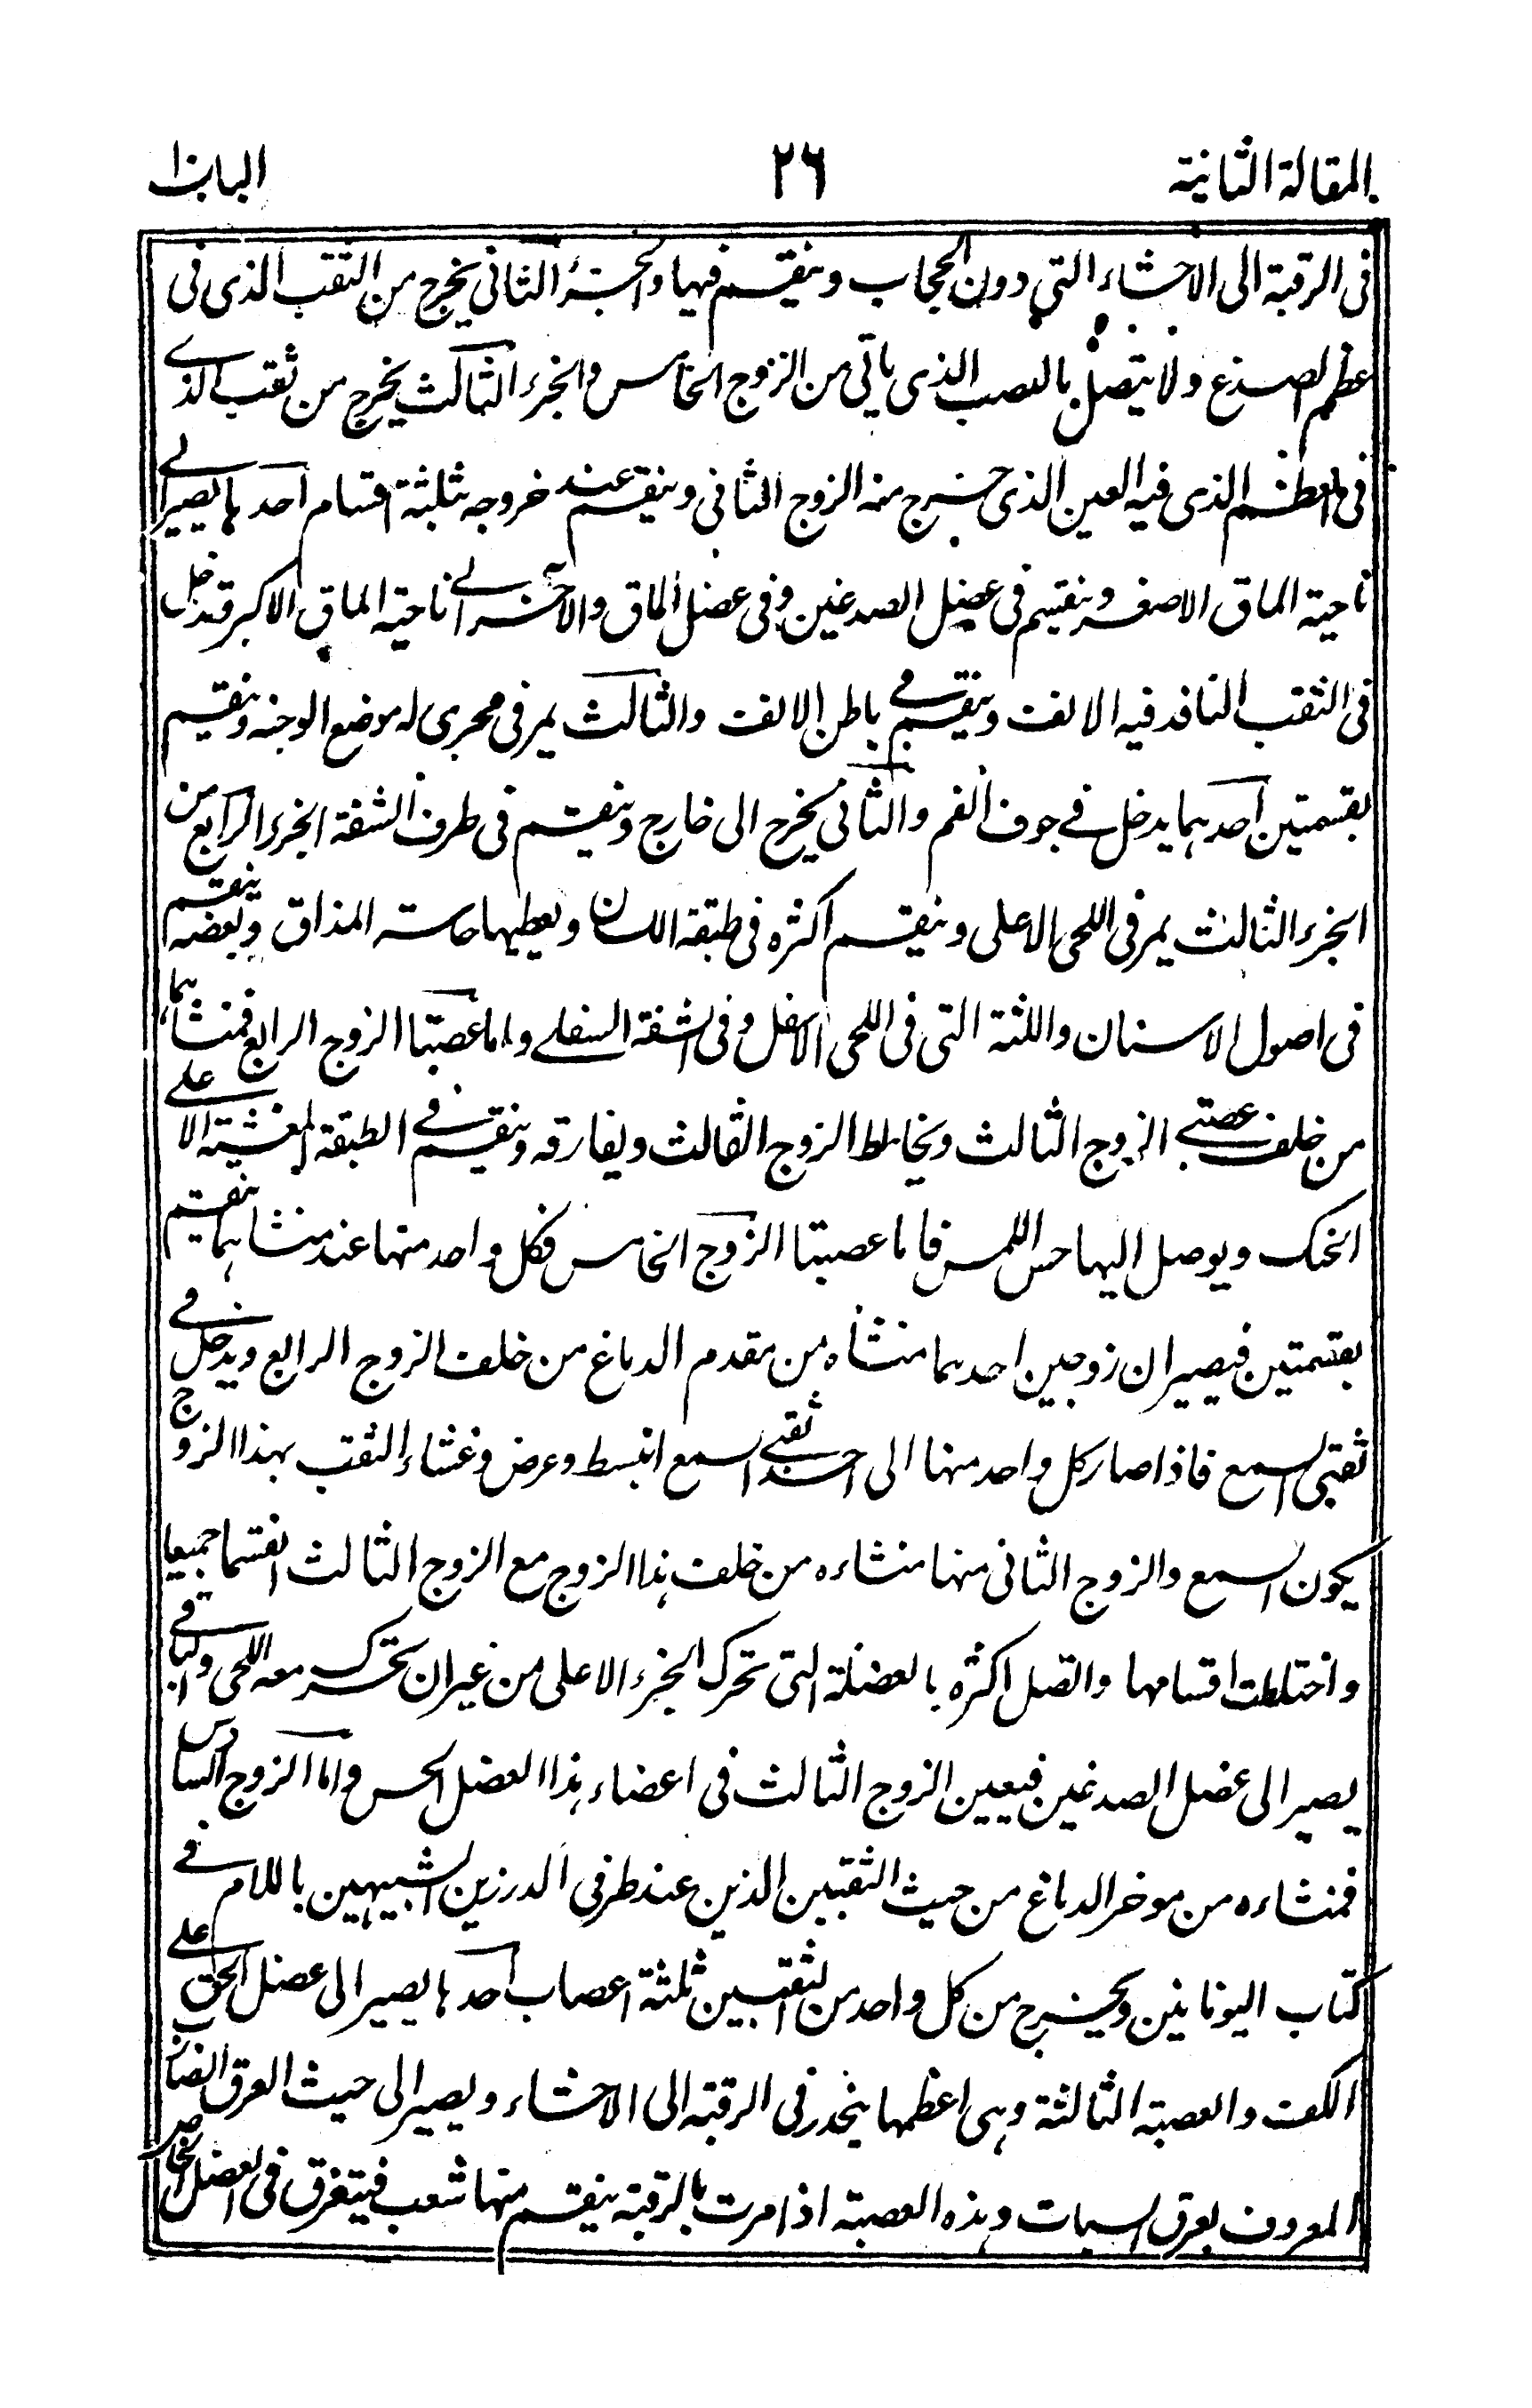 المقالة الثانية ٢٦ الباب١
فى الرقبة الى الاحشاء التى دون الحجاب وينقسم فيها والجزء الثانى يخرج من الثقب الذى فى
عظم الصدغ ولا يتصل بالعصب الذى ياتى من الزوج الخامس والجزء الثالث يخرج من ثقب الذى
فى العظم الذى فيه العين الذى خرج منه الزوج الثانى وينقسم عند خروجه بثلثة اقسام احدها يصير الى
ناحية الماق الاصغر وينقسم فى عضل الصدغين وفى عضل الماق والاخر الى ناحية الماق الاكبر قدخل
فى الثقب النافذ فيه الانف وينقسم فى باطن الانف والثالث يمر فى مجرى له موضع الوجنه وينقسم
بقسمتين احدهما يدخل فى جوف الفم والثانى يخرج الى خارج وينقسم فى طرف الشفة الجزء الرابع من
الجزء الثالث يمر فى اللحى الاعلى وينقسم اكثره فى طبقة اللسان ويعطيها حاسته المذاق وبعضه ينقسم
فى اصول الاسنان واللثة التى فى اللحى الاسفل وفى الشفة السفلى واما عصبتا الزوج الرابع فمنشاهما
من خلف عصبتى الزوج الثالث ويخالط الزوج الثالث ويفارقه وينقسم فى الطبقة المغشية الاعلى
الحنك ويوصل اليها حس اللمس فاما عصبتا الزوج الخامس فكل واحد منها عند منشاهما ينقسم
بقسمتين فيصيران زوجين احدهما منشاه من مقدم الدماغ من خلف الزوج الرابع ويدخل فى
ثقبى السمع فاذا صار كل واحد منها الى احد ثقبى السمع انبسط وعرض وغشاء الثقب بهذا الزوج
يكون السمع والزوج الثانى منها منشاءه من خلف هذا الزوج مع الزوج الثالث انقسما جميعا
واختلطت اقسامها واتصل اكثره بالعضلة التى تحرك الجزء الاعلى من غيران تحرك معه اللحى والباقى
يصير الى عضل الصدغين فيعين الزوج الثالث فى اعضاء هذا العضل الحس واما الزوج السادس
فمنشاءه من موخر الدماغ من حيث الثقبين الذين عند طرفى الدرزين الشبيهين باللام فى
كتاب اليونانين ويخرج من كل واحد من الثقبين ثلثة اعصاب احدها يصير الى عضل الحق على
الكف والعصبة الثالثة وهى اعظمها ينحدر فى الرقبة الى الاحشاء ويصير الى حيث العرق الضارب
المعروف بعرق السبات وهذه العصبة اذا مرت بالرقبة ينقسم منها شعب فيتفرق فى العضل الخاص